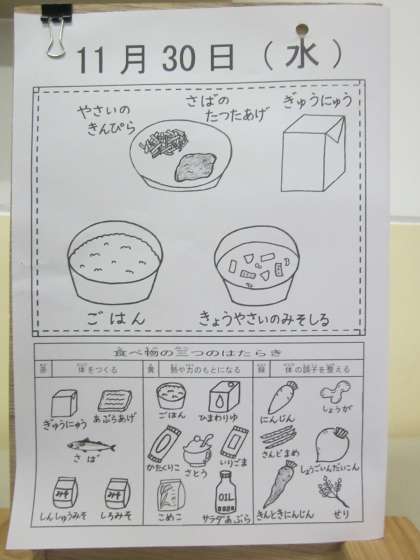 11月30日(水)
やさいの
きんぴら
さばの
たつたあげ
ぎゅうにゅう
ごはん
きょうやさいのみそしる
食べ物の三つのはたらき
赤 体をつくる
黄 熱や力のもとになる
緑 体の調子を整える
ぎゅうにゅう
あぶらあげ
さば
みそ
みそ
しんしゅうみそ
しろみそ
ごはん
ひまわりゆ
かたくりこ
さとう
いりごま
こめこ
OIL
サラダあぶら
にんじん
しょうが
さんどまめ
しょうごいんだいこん
きんときにんじん
せり